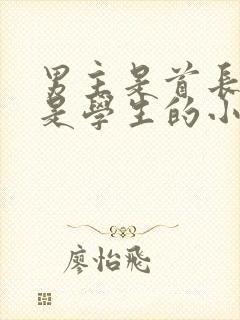 男主是首長
是學生的小
廖怡飛